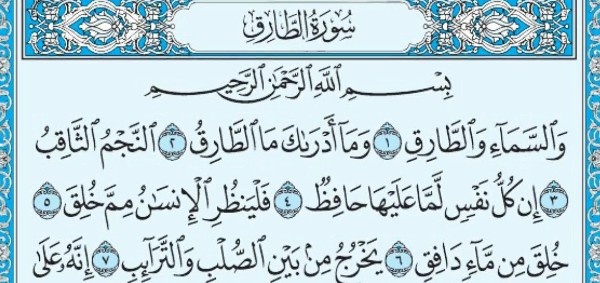 سُورَةُ الطَّارِقِ
بِسْمِ ٱللَّهِ ٱلرَّحْمَٰنِ ٱلرَّحِيمِ
وَٱلسَّمَآءِ وَٱلطَّارِقِ ١ وَمَآ أَدْرَىٰكَ مَا ٱلطَّارِقُ ٢ ٱلنَّجْمُ ٱلثَّاقِبُ
٣ إِن كُلُّ نَفْسٍ لَّمَّا عَلَيْهَا حَافِظٌ ٤ فَلْيَنظُرِ ٱلْإِنسَٰنُ مِمَّ خُلِقَ ٥
خُلِقَ مِن مَّآءٍ دَافِقٍ ٦ يَخْرُجُ مِنۢ بَيْنِ ٱلصُّلْبِ وَٱلتَّرَآئِبِ ٧ إِنَّهُۥ عَلَىٰ